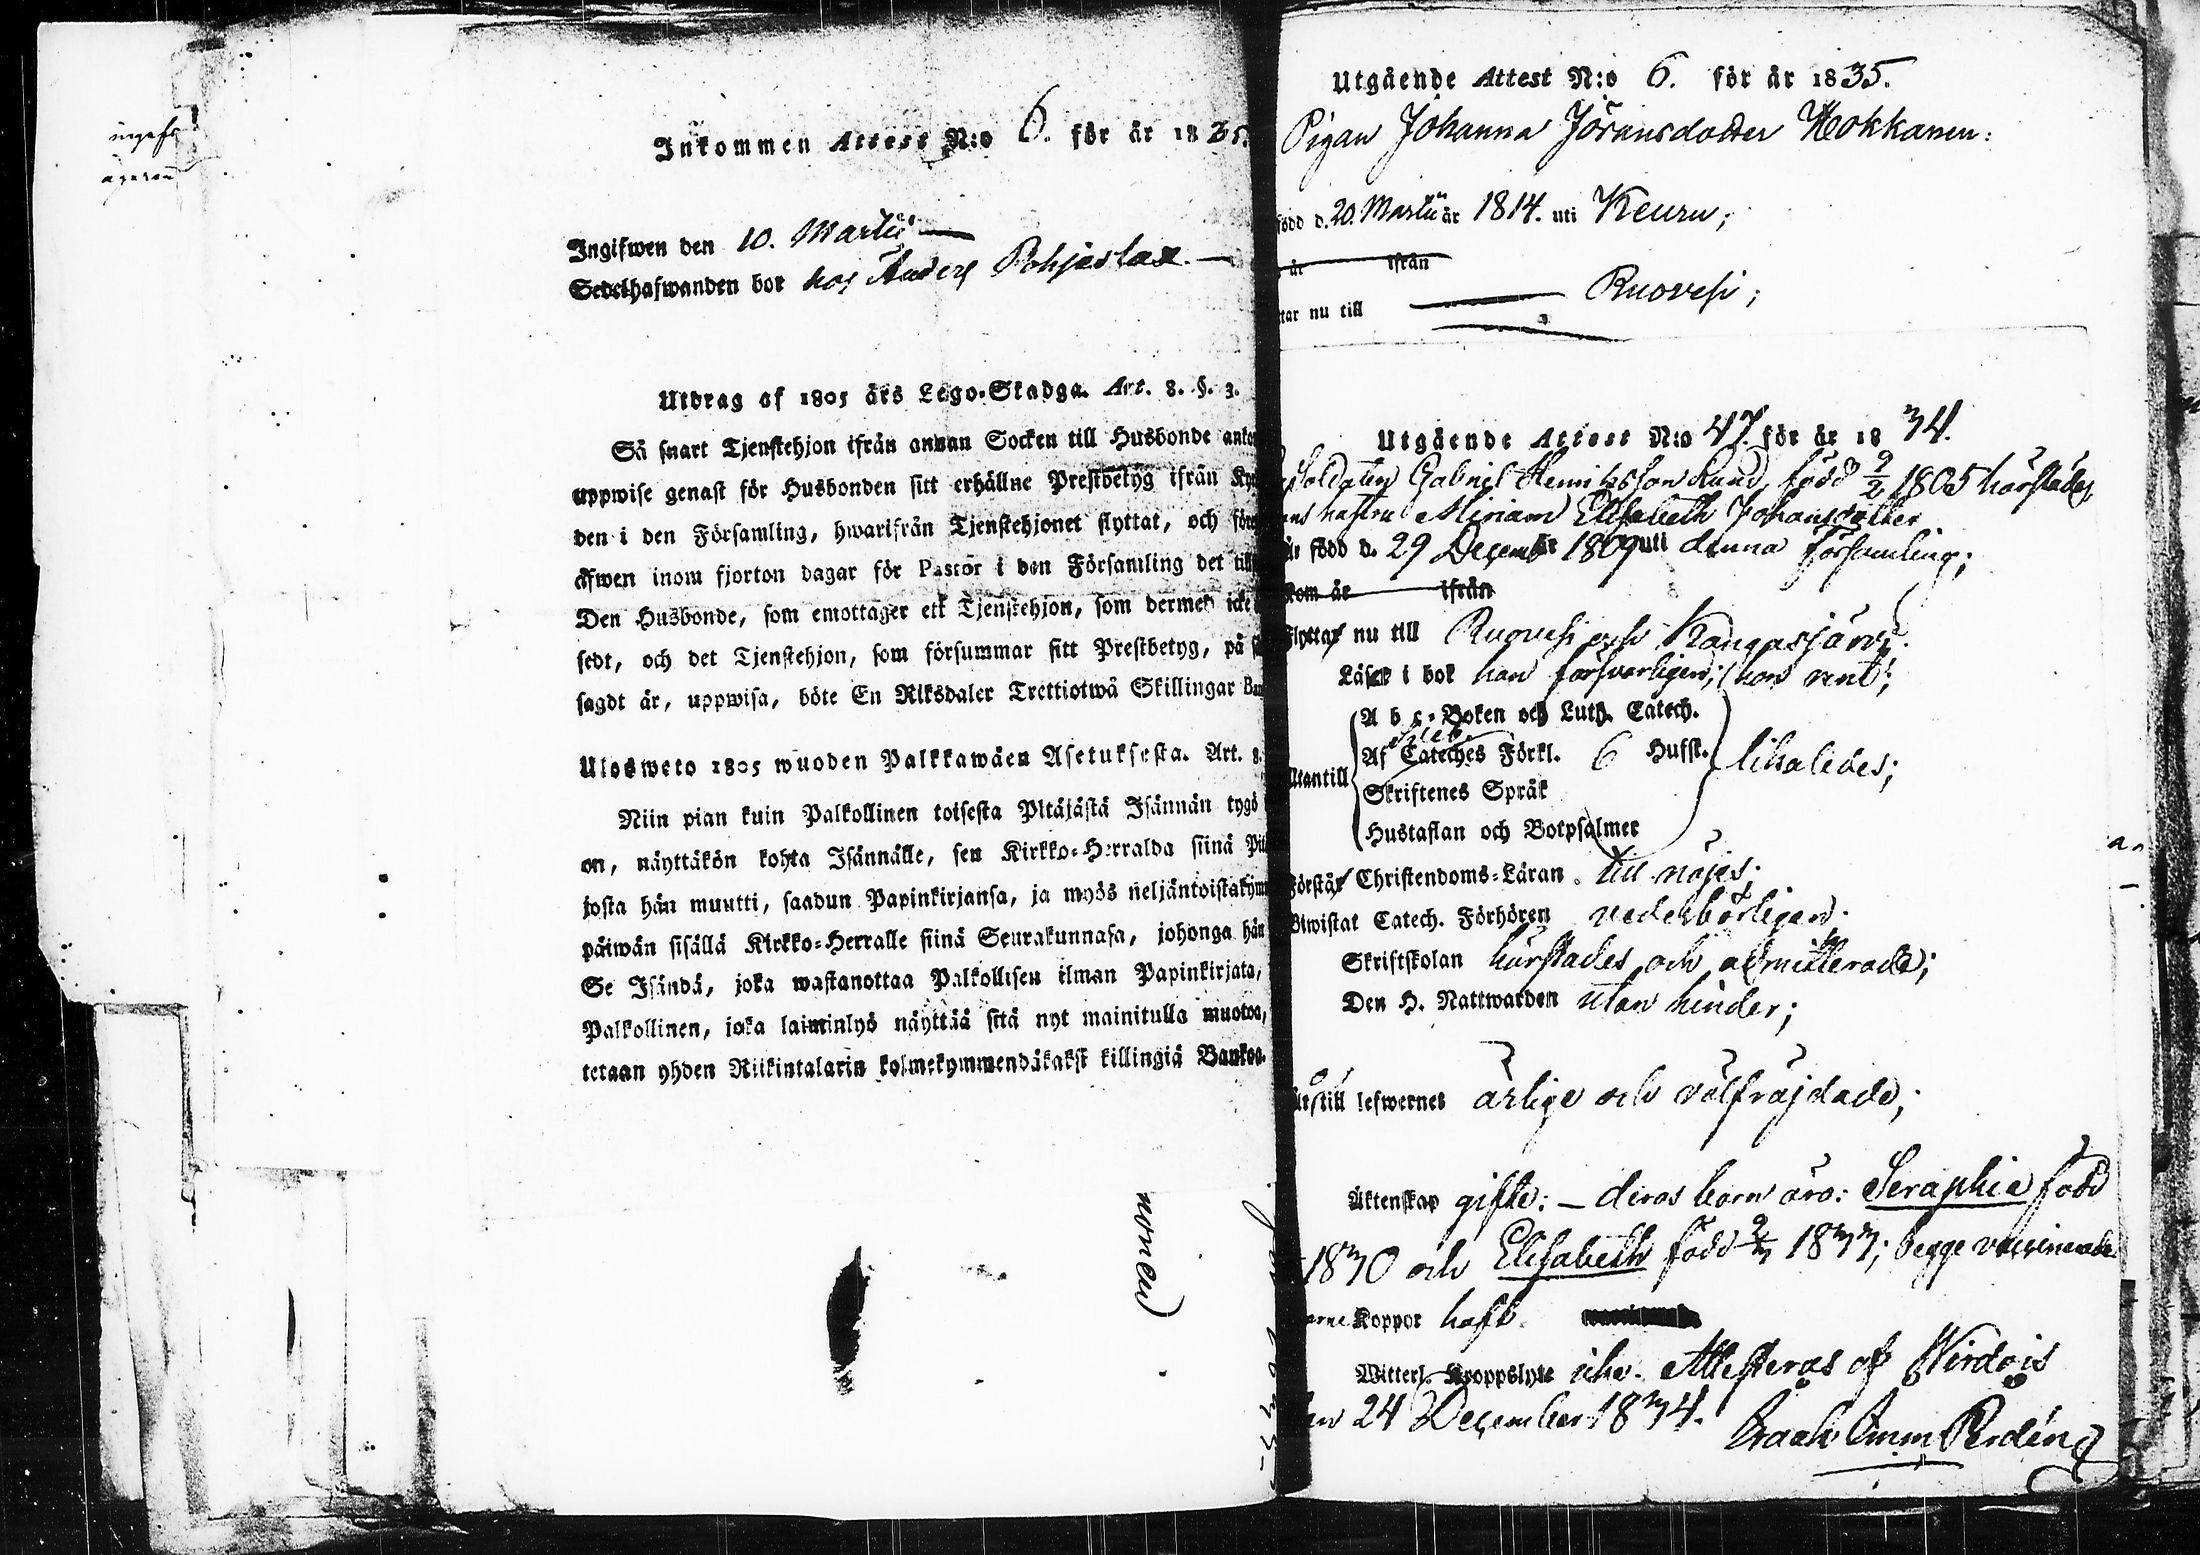 Inkommen Attest N:o 6. för år 1835.
Ingifwen den 10. Martii
Sedelhafwanden bor hos Anders Pohjaslax.
Utdrag af 1805 års Lego-Stadga. Art. 8. §. 3.
Så snart Tjenstehjon ifrån annan Socken till Husbonde
uppwise genast för Husbonden sitt erhållne Prestbetyg ifrån
den i den Församling, hwarifrån Tjenstehjonet flyttat, och
äfwen inom fjorton dagar för Pastor i den Församling det
Den Husbonde, som emottager ett Tjenstehjon, som dermed icke
sedt, och det Tjenstehjon, som försummar sitt Prestbetyg, på
sagdt är, uppwisa, böte En Riksdaler Trettiotwå Skillingar
Ulosweto 1805 wuoden Palkkawäen Asetuksesta. Art. 8.
Niin pian kuin Palkollinen toisesta Pitäjästä Isännän tygö
on, näyttäkön kohta Isännälle, sen Kirkko-Herralda siinä
josta hän muutti, saadun Papinkirjansa, ja myös
päiwän sisällä Kirkko-Herralle siinä Seurakunnasa, johonga hän
Se Isändä, joka wastanottaa Palkollisen ilman Papinkirjata,
Palkollinen, joka laiminlyö näyttää sitä nyt mainitulla muotoa,
tetaan yhden Riikintalarin kolmekymmendäkaksi killingiä Bankos.
Utgående Attest N:o 6. för år 1835.
Pigan Johanna Jöransdotter Hokkanen:
född d. 20. Martii år 1814. uti Keuru;
år ifrån
tar nu till Ruovesi;
Utgående Attest N:o 47. för år 1834.
Soldaten Gabriel Henriksson Lund, född 9/2 1805 härstädes,
hustru Miriam Elisabeth Johansdotter
är född d. 29 Decemb 1809 uti denna församling;
kom år ifrån
Flyttar nu till Ruovesi och Kangasjärvi.
Läser i bok han försvarligen; hon rent;
A b c-Boken och Luth. Catech.
Af Cateches Förkl. 6 Hufst. likaledes;
Utantill
Skriftenes Språk
Hustaflan och Botpsalmer
Förstår Christendoms-Läran till nöjes.
Biwistat Catech. Förhören vederbörligen.
Skriftskolan härstädes och admitterade;
Den H. Nattwarden utan hinder;
till lefwernet ärlige och välfräjdade;
Äktenskap gifte: – deras barn äro: Seraphia född
1830 och Elisabeth född 9/3 1833; begge vaccinerade
Koppor haft.
Witterl. Kroppslyte icke. Attesteras af Wirdois
den 24 December 1834.